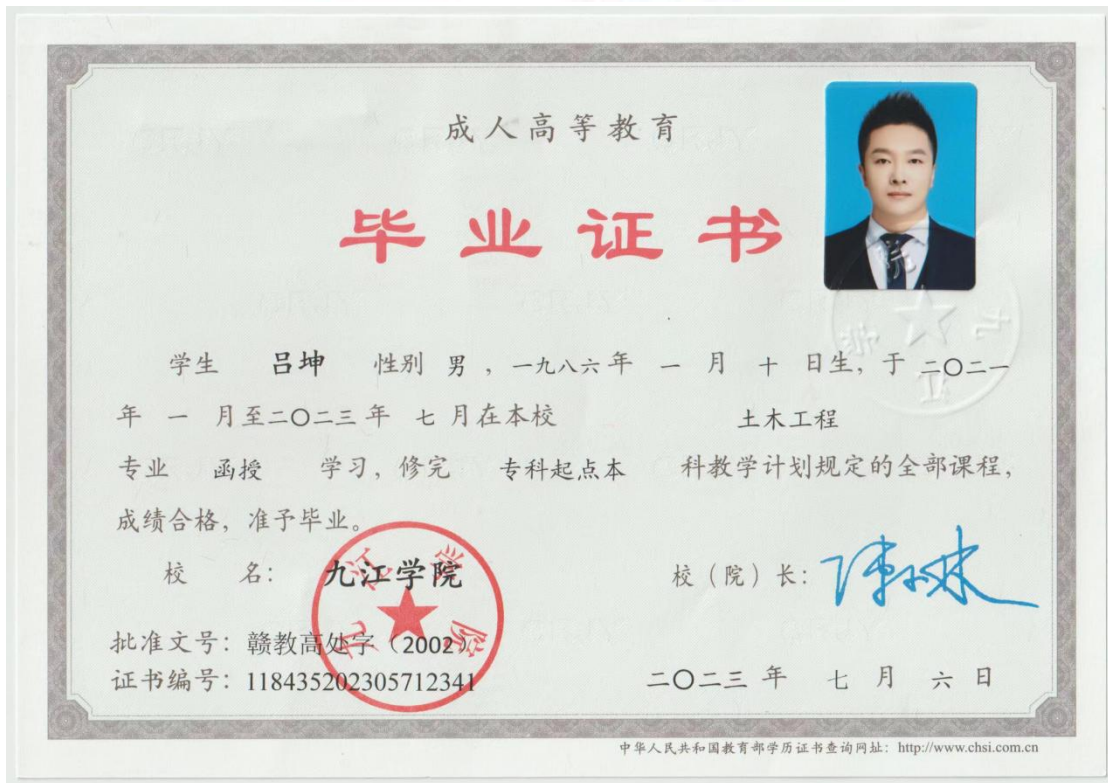 成人高等教育
毕业证书
学生 吕坤 性别 男 ，一九八六年 一 月 十 日生，于 二〇二一
年 一 月至二〇二三年 七 月在本校 土木工程
专业 函授 学习，修完 专科起点本 科教学计划规定的全部课程，
成绩合格，准予毕业。
校 名： 九江学院 校（院）长：
九江学院
批准文号：赣教高处字（2002）
证书编号：118435202305712341 二〇二三 年 七 月 六 日
中华人民共和国教育部学历证书查询网址：http://www.chsi.com.cn